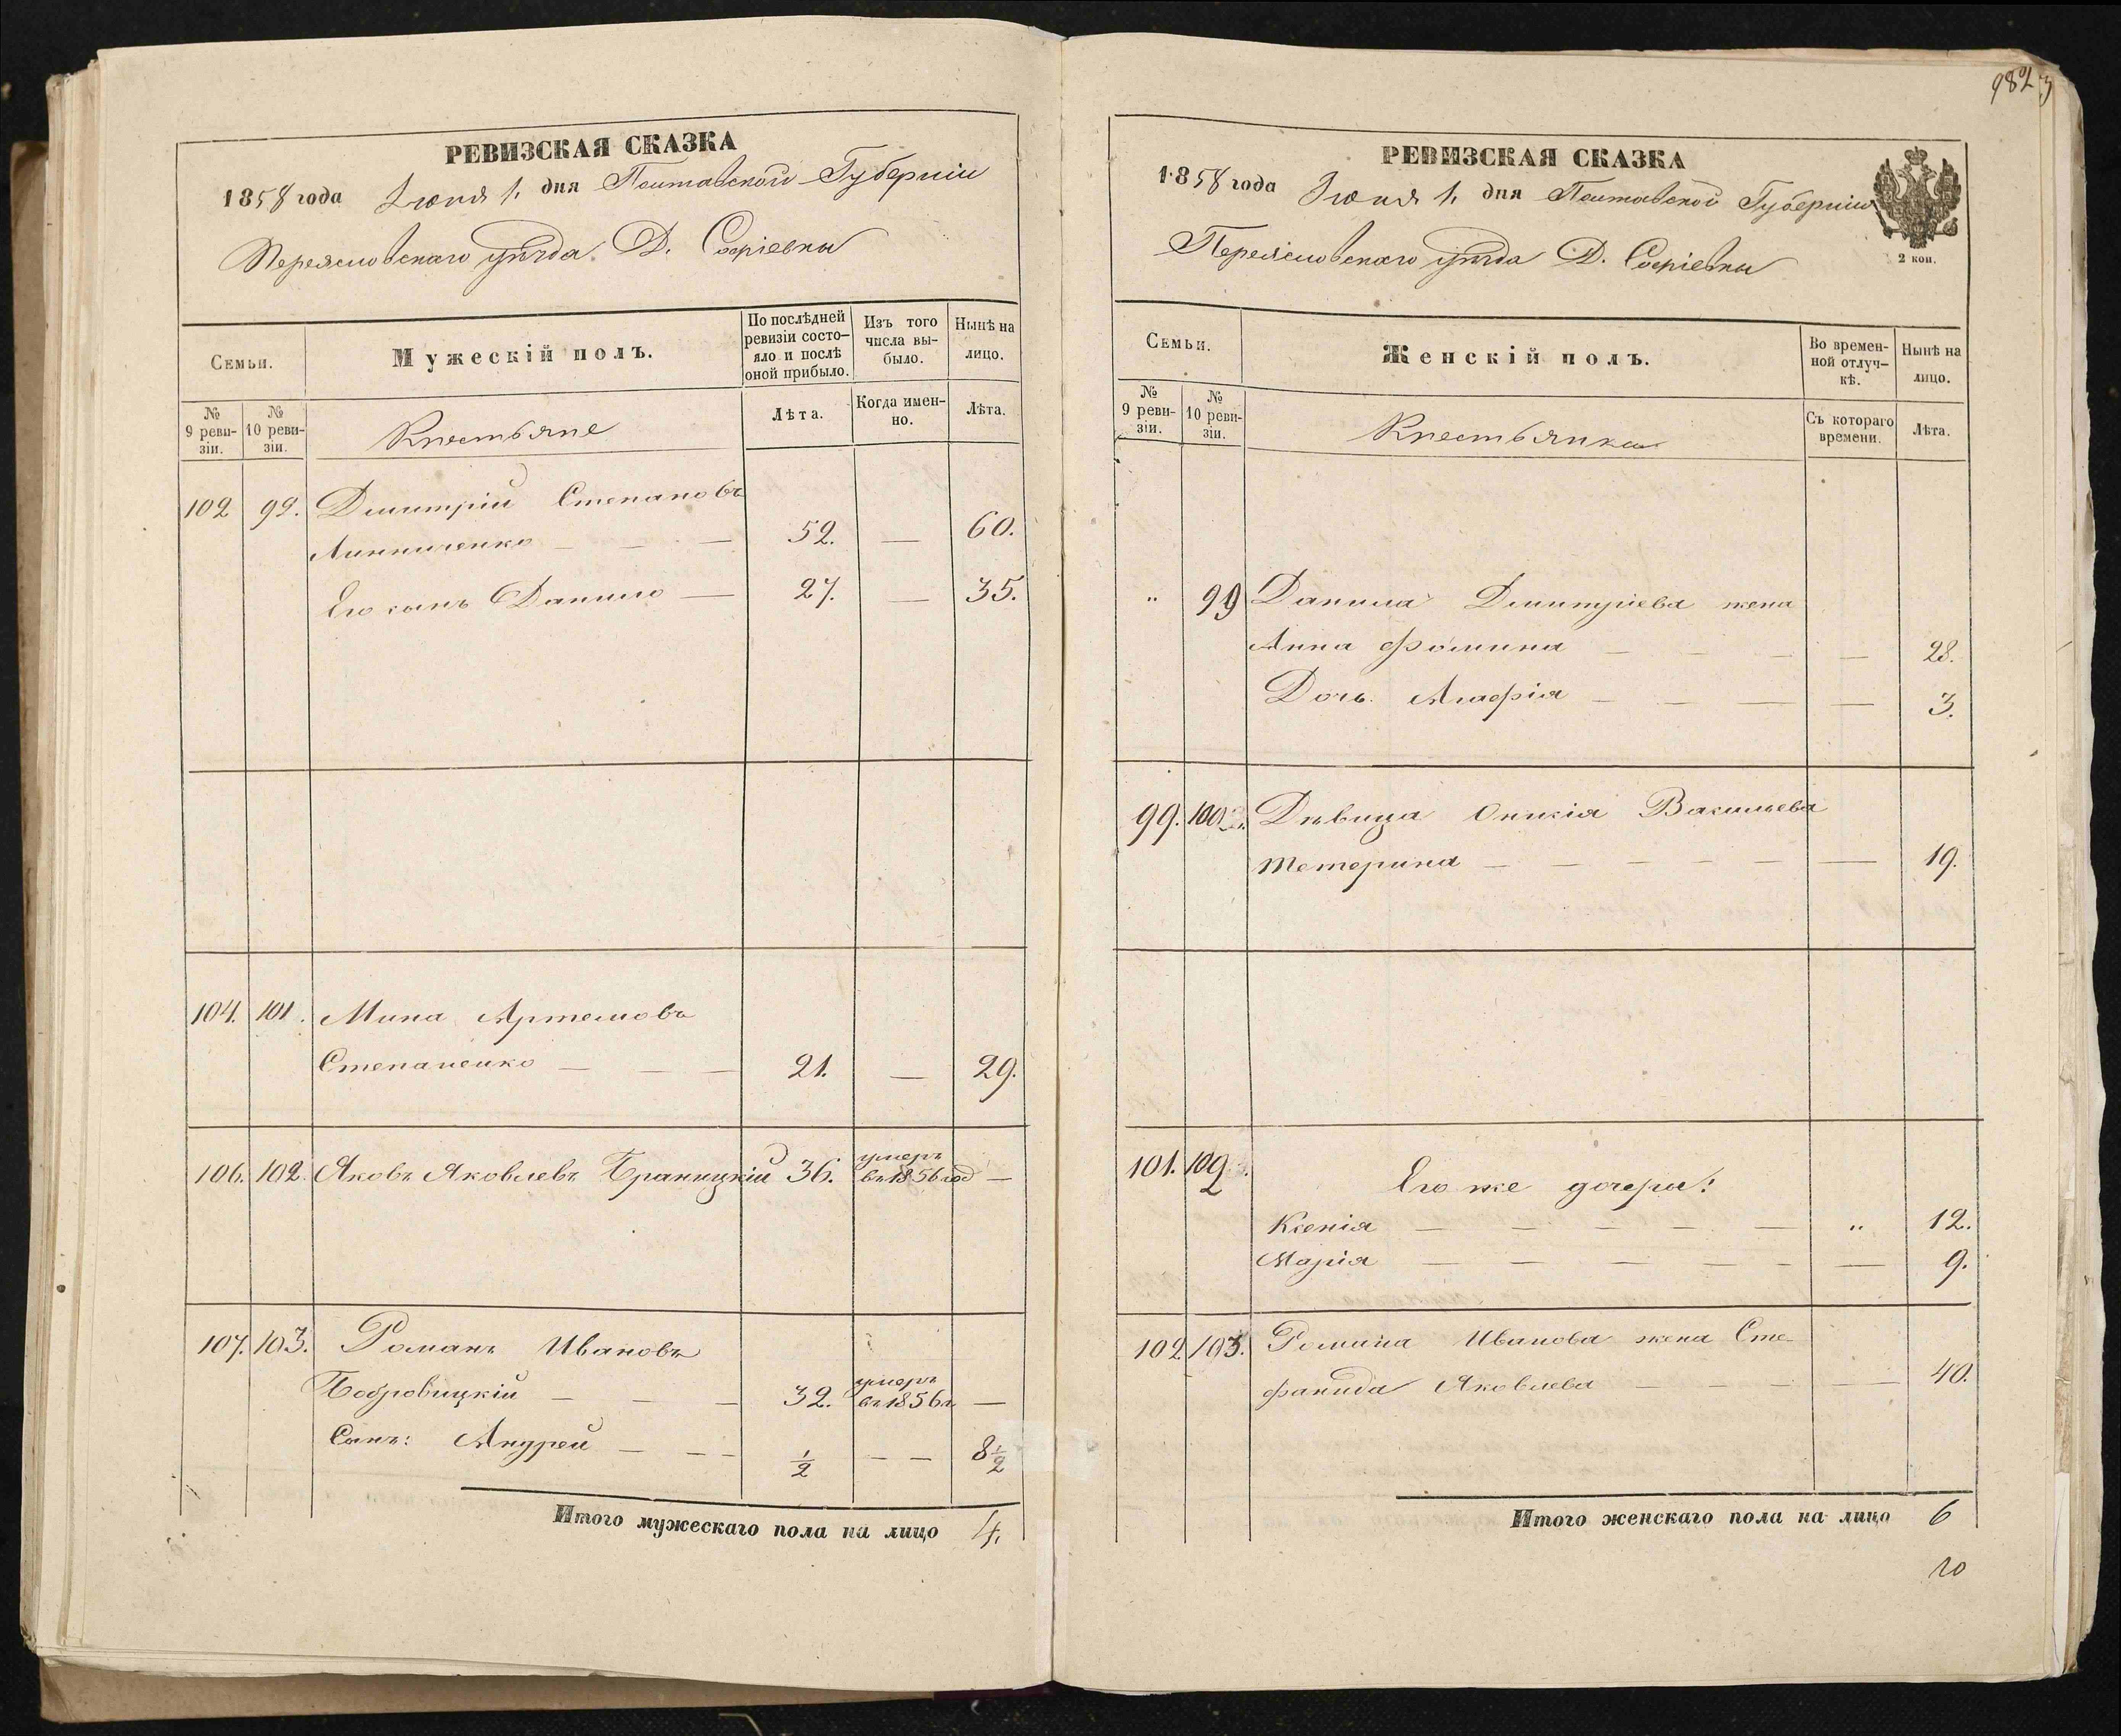 РЕВИЗСКАЯ СКАЗКА
1858 года Іюня 1. дня Полтавской Губерніи
Переяславскаго уѣзда Д. Софіевки
Семьи.
Мужескій полъ.
По послѣдней ревизіи состо-яло и послѣ оной прибыло.
Изъ того числа вы-было.
Нынѣ на лицо.
№ 9 реви-зіи.
№ 10 реви-зіи.
Крестьяне
Лѣта.
Когда имен-но.
Лѣта.
102 99. Дмитрій Степановъ
Линниченко — — — 52. — 60.
Его сынъ Данило — 27. — 35.
104. 101. Мина Артемовъ
Степаненко — — — 21. — 29.
106. 102. Яковъ Яковлевъ Браницкій 36. умеръ въ 1856 год —
107. 103. Романъ Ивановъ
Бобровицкій — — — 32. умеръ въ 1856 г. —
Сынъ: Андрей — — — 1/2 — — 8 1/2
Итого мужескаго пола на лицо 4.
982
3
РЕВИЗСКАЯ СКАЗКА
1858 года Іюня 1. дня Полтавской Губерніи
Переяславскаго уѣзда Д. Софіевки
2 коп.
Семьи.
Женскій полъ.
Во времен-ной отлуч-кѣ.
Нынѣ на лицо.
№ 9 реви-зіи.
№ 10 реви-зіи.
Крестьянки
Съ котораго времени.
Лѣта.
" 99 Данила Дмитріева жена
Анна Фомина — — — — 28.
Дочь Агафія — — — — 3.
99. 100. Дѣвица Васильева
Тетерина — — — — — — 19.
101. 102. Его же дочери:
Ксенія — — — — — " 12.
Марія — — — — — — 9.
102 103. Романа Иванова жена Сте-
фанида Яковлева — — — — 40.
Итого женскаго пола на лицо 6
10